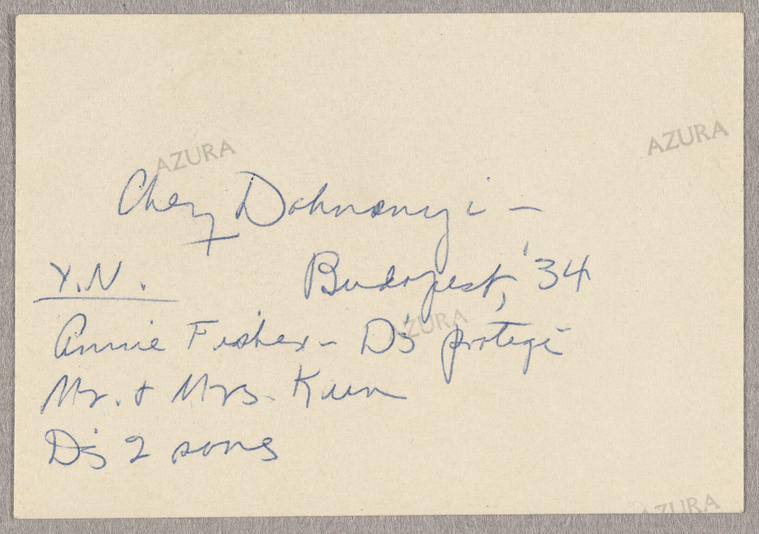 AZURA
AZURA
Chez Dohnanyi –
Y.N.
Budapest, '34
AZURA
Annie Fisher – D's protegé
Mr. & Mrs. Kuen
D's 2 sons
AZURA